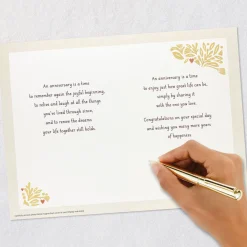 An anniversary is a time
to remember again the joyful beginning,
to relive and laugh at all the things
you've lived through since,
and to renew the dreams
your life together still holds.
An anniversary is a time
to enjoy just how great life can be,
simply by sharing it
with the one you love.
Congratulations on your special day
and wishing you many more years
of happiness.